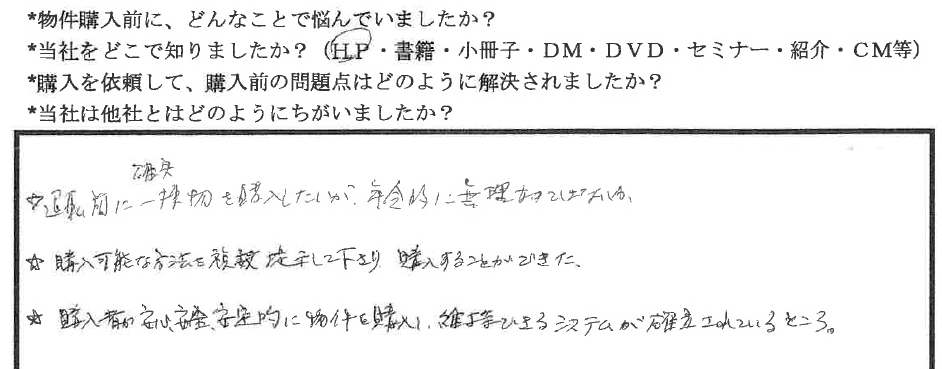 *物件購入前に、どんなことで悩んでいましたか？
*当社をどこで知りましたか？（HP・書籍・小冊子・DM・DVD・セミナー・紹介・CM等）
*購入を依頼して、購入前の問題点はどのように解決されましたか？
*当社は他社とはどのようにちがいましたか？
確実
☆退職前に一棟物を購入したいが、年令的に無理なのではないか。
☆ 購入可能な方法を複数提示して下さり 購入することができた。
☆ 購入者が安心、安全、安定的に物件を購入し、維持できるシステムが確立されているところ。